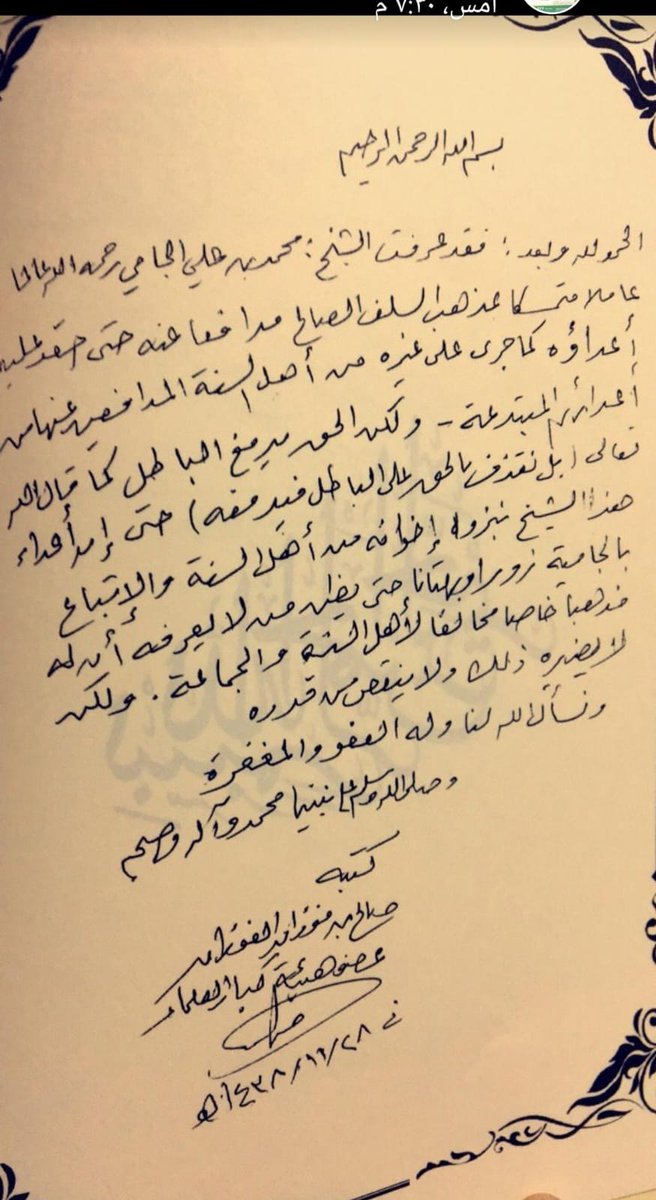 أمس، ٧:٣٠ م
بسم الله الرحمن الرحيم
الحمد لله وبعد: فقد عرفت الشيخ: محمد بن علي الجامي رحمه الله عالما
عاملا متمسكا بمذهب السلف الصالح مدافعا عنه حتى حقد عليه
أعداؤه كما جرى على غيره من أهل السنة المدافعين عنها من
أعدائهم المبتدعة - ولكن الحق يدمغ الباطل كما قال الله
تعالى (بل نقذف بالحق على الباطل فيدمغه) حتى إن أعداء
هذا الشيخ نبزوا إخوانه من أهل السنة والإتباع
بالجامية زورا وبهتانا حتى يظن من لا يعرفه أن له
مذهبا خاصا مخالفا لأهل السنة والجماعة. ولكن
لا يضيره ذلك ولا ينقص من قدره
ونسأل الله لنا وله العفو والمغفرة
وصلى الله وسلم على نبينا محمد وآله وصحبه
كتبه
صالح بن فوزان الفوزان
عضو هيئة كبار العلماء
في ٢٨/١١/١٤٣٨هـ